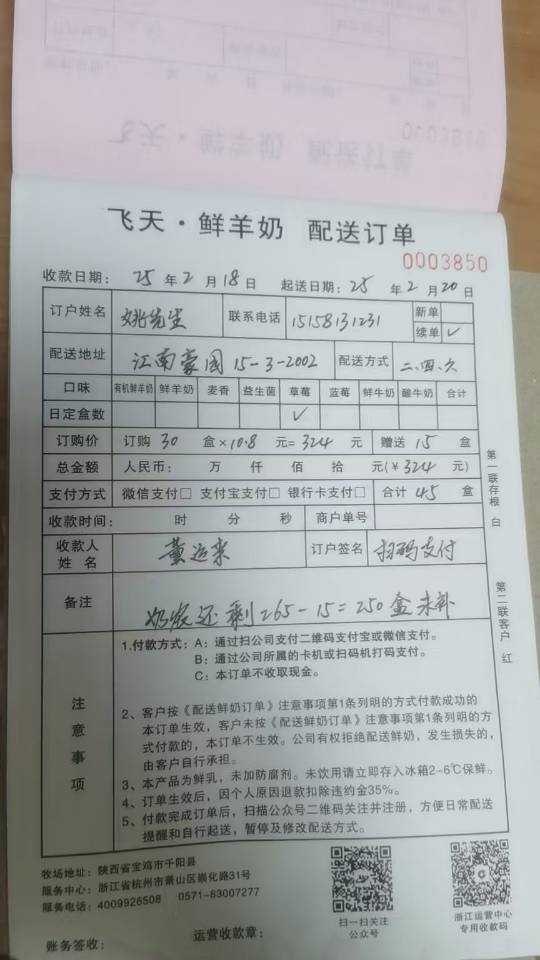 飞天·鲜羊奶 配送订单
0003850
收款日期： 25 年 2 月 18 日 起送日期： 25 年 2 月 20 日
订户姓名 姚先生 联系电话 15158131231 新单
续单 ✓
配送地址 江南豪园 15-3-2002 配送方式 二.四.六
口味 有机鲜羊奶 鲜羊奶 麦香 益生菌 草莓 蓝莓 鲜牛奶 酸牛奶 合计
日定盒数 ✓
订购价 订购 30 盒×10.8 元= 324 元 赠送 15 盒
总金额 人民币： 万 仟 佰 拾 元(￥324 元)
支付方式 微信支付□ 支付宝支付□ 银行卡支付□ 合计 45 盒
收款时间： 时 分 秒 商户单号
收款人姓名 董运来 订户签名 扫码支付
备注 还剩265-15=250盒未补
第一联存根 白
第二联客户 红
注意事项
1.付款方式：A：通过扫公司支付二维码支付宝或微信支付。
B：通过公司所属的卡机或扫码机打码支付。
C：本订单不收取现金。
2、客户按《配送鲜奶订单》注意事项第1条列明的方式付款成功的
本订单生效，客户未按《配送鲜奶订单》注意事项第1条列明的方
式付款的，本订单不生效。公司有权拒绝配送鲜奶，发生损失的，
由客户自行承担。
3、本产品为鲜乳，未加防腐剂。未饮用请立即存入冰箱2-6℃保鲜。
4、订单生效后，因个人原因退款扣除违约金35%。
5、付款完成订单后，扫描公众号二维码关注并注册，方便日常配送
提醒和自行起送，暂停及修改配送方式。
牧场地址：陕西省宝鸡市千阳县
服务中心：浙江省杭州市萧山区崇化路31号
服务电话：4009926508 0571-83007277
扫一扫关注
公众号
浙江运营中心
专用收款码
账务签收： 运营收款章：